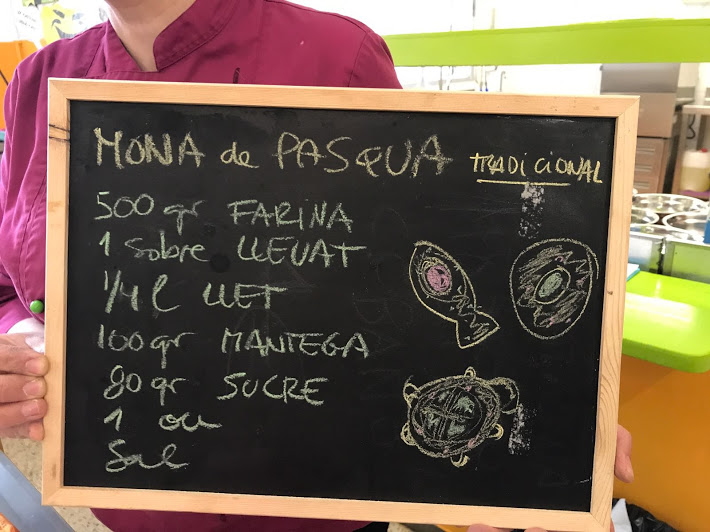 MONA de PASQUA TRADICIONAL
500 gr FARINA
1 Sobre LLEVAT
1/4 l LLET
100 gr MANTEGA
80 gr SUCRE
1 ou
Sal